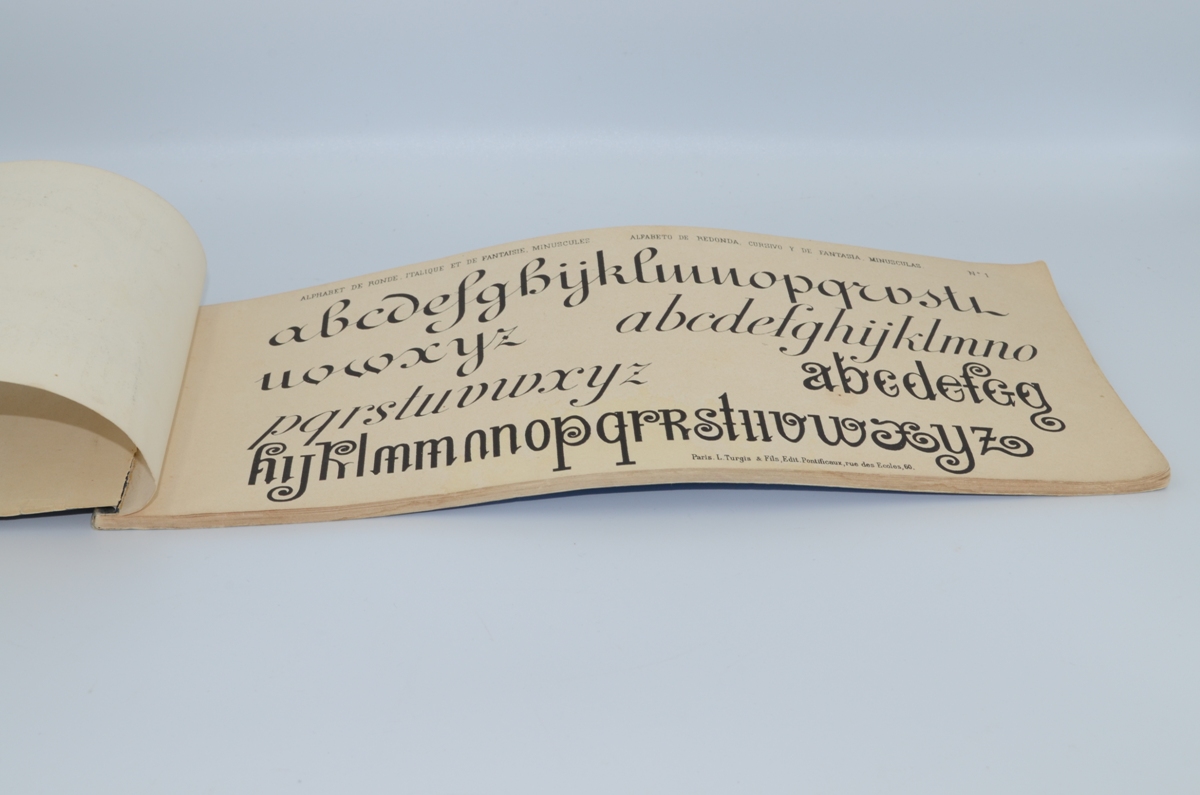 ALPHABET DE RONDE, ITALIQUE ET DE FANTAISIE, MINUSCULES ALFABETO DE REDONDA, CURSIVO Y DE FANTASIA, MINUSCULAS Nº 1
abcdefghijklmnopqrvst
uvwxyz abcdefghijklmno
pqrstuvwxyz abcdefg
hijklmmnnopqrrstuvwxyz
Paris. L. Turgis & Fils, Edit. Pontificaux, rue des Ecoles, 60.